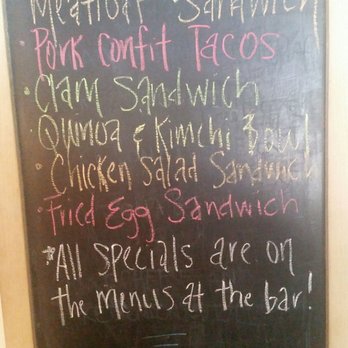 Meatloaf Sandwich
• Pork Confit Tacos
• Clam Sandwich
• Quinoa & Kimchi Bowl
• Chicken Salad Sandwich
• Fried Egg Sandwich
*All specials are on
the menus at the bar!